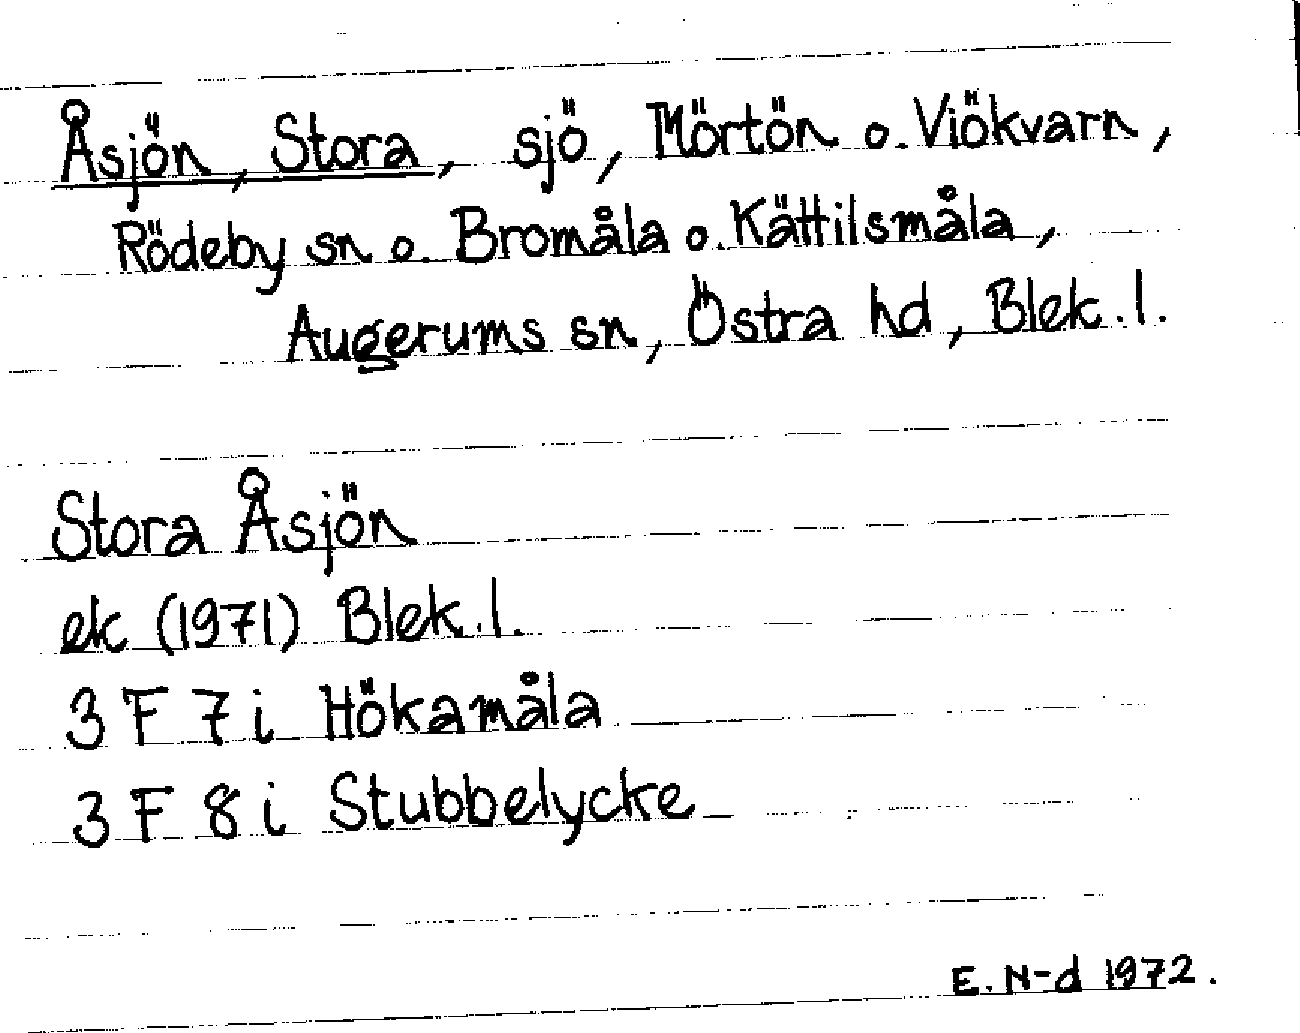 Åsjön, Stora, sjö, Mörtön o. Viökvarn,
Rödeby sn o. Bromåla o. Kättilsmåla,
Augerums sn, Östra hd, Blek. l.
Stora Åsjön
ek (1971) Blek. l.
3 F 7 i Hökamåla
3 F 8 i Stubbelycke
E. N-d 1972.